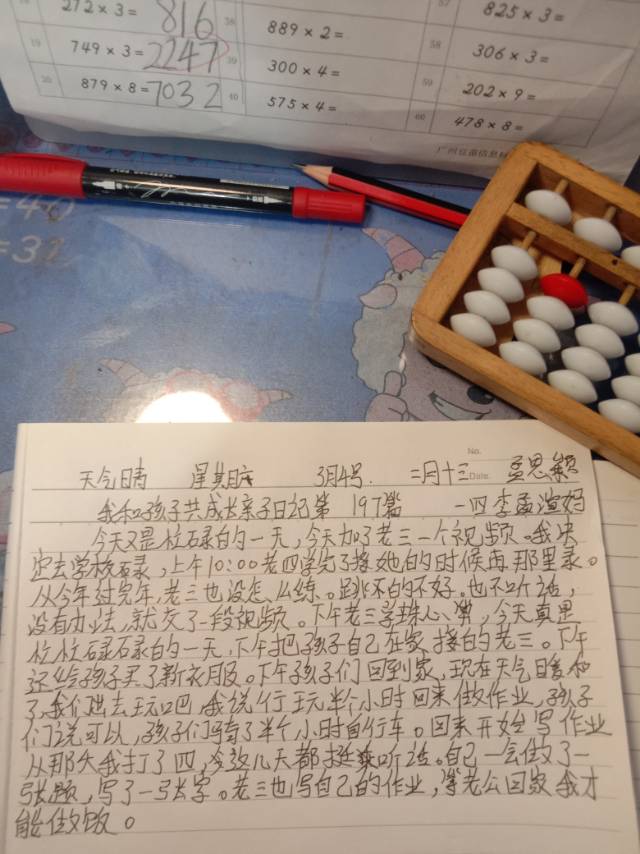 272×3= 816
19 749×3= 2247
20 879×8= 7032
38 889×2=
39 300×4=
40 575×4=
57 825×3=
58 306×3=
59 202×9=
60 478×8=
广州豆滴信息科
=40
=32
No.
Date.
天气晴 星期六 3月4号. 二月十三 孟思颖
我和孩子共成长亲子日记第 197篇 一四李孟渲妈
今天又是忙碌的一天,今天加了老三一个视频。我决
定去学校录,上午10:00老四学完了接她的时候再那里录。
从今年过完年,老三也没怎么练。跳的不好。也不听话,
没有办法,就交了一段视频。下午老三学珠心算,今天真是
忙忙碌碌的一天,下午把孩子自己在家,接的老三。下午
还给孩子买了新衣服。下午孩子们回到家,现在天气暖和
了,我们出去玩吧,我说行玩半个小时回来做作业,孩子
们说可以,孩子们骑了半个小时自行车。回来开始写作业
从那天我打了四,今这几天都挺听话。自己一会做了一
张题,写了一张字。老三也写自己的作业,等老公回家我才
能做饭。